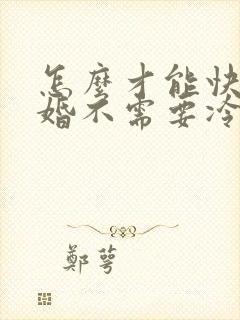 怎麼才能快
婚不需要冷
鄭萼